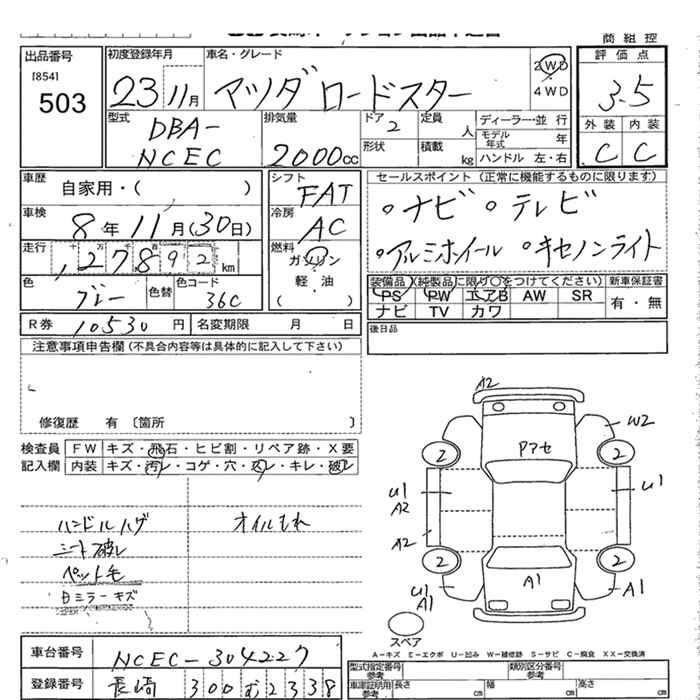 商 組 控
出品番号
[854]
503
初度登録年月
23 11月
車名・グレード
マツダ ロードスター
2WD
4WD
評 価 点
3.5
外 装 内 装
C C
型式
DBA-
NCEC
排気量
2000cc
ドア 2
形状
定員 人
積載 kg
ディーラー・並 行
モデル年式 年
ハンドル 左・右
車歴
自家用・( )
車検
8年 11月(30日)
走行
127,892 km
色
ブルー
色替
色コード
36C
シフト
FAT
冷房
AC
燃料
ガソリン
軽 油
( )
セールスポイント (正常に機能するものに限ります)
。ナビ 。テレビ
。アルミホイール 。キセノンライト
装備品 (純製品に限り○をつけてください)
PS PW エアB AW SR
ナビ TV カワ
新車保証書
有・無
R券 10530 円 名変期限 月 日
後日品
注意事項申告欄 (不具合内容等は具体的に記入して下さい)
修復歴 有 〔箇所 〕
検査員
記入欄
FW キズ・飛石・ヒビ割・リペア跡・X要
内装 キズ・汚レ・コゲ・穴・スレ・キレ・破レ
ハンドルハゲ
オイルもれ
シート破レ
ペット毛
Bミラーキズ
A2
W2
Pアセ
2 2
U1
A2
U1
A2
2 2
U1
A1
A1
A1
スペア
A-キズ E-エクボ U-凹み W-補修跡 S-サビ C-腐食 XX-交換済
車台番号
NCEC-304227
登録番号
長崎 300 む 2338
型式指定番号
参考
類別区分番号
参考
車庫証明用
参考
長さ cm
幅 cm
高さ cm